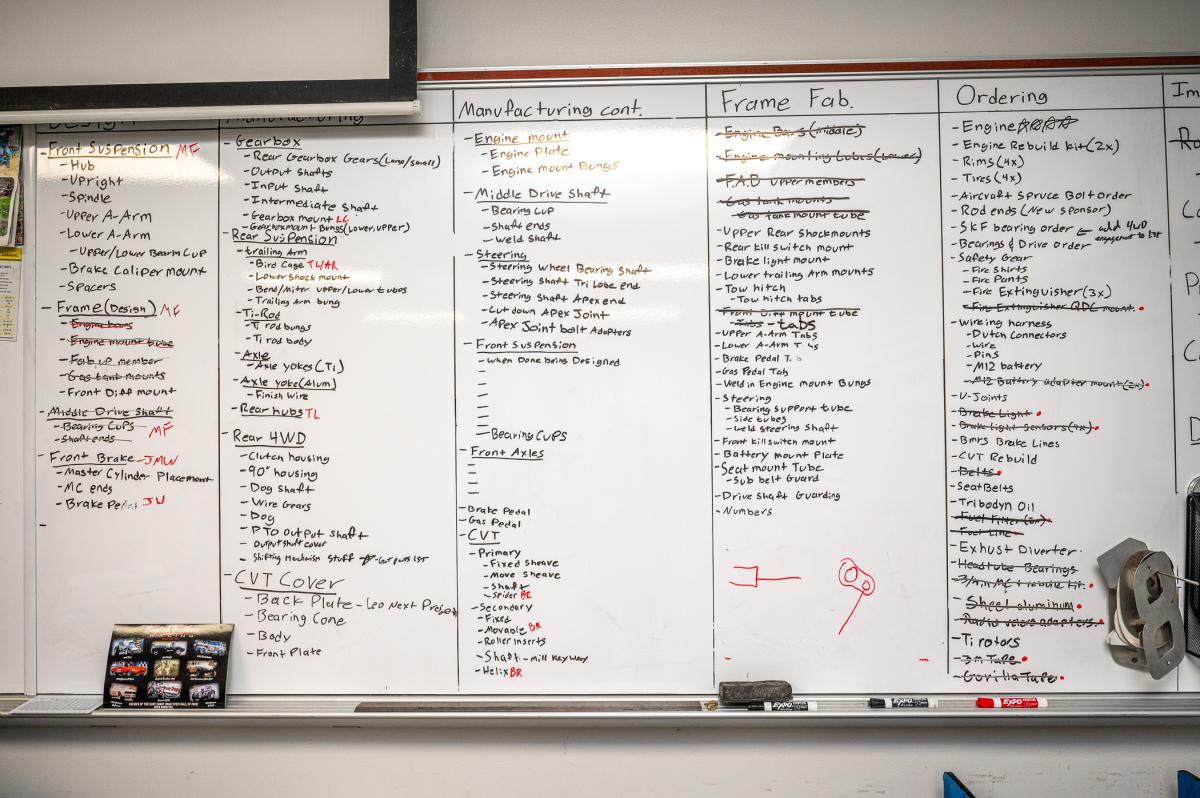 Design
- Front Suspension MF
- Hub
- Upright
- Spindle
- Upper A-Arm
- Lower A-Arm
- Upper/Lower Bearm Cup
- Brake Caliper mount
- Spacers
- Frame (Design) MF
- Engine bars
- Engine mount tube
- Fab up member
- Gas tank mounts
- Front Diff mount
- Middle Drive Shaft
- Bearing Cups MF
- Shaft ends
- Front Brake - JMW
- Master Cylinder Placement
- MC ends
- Brake Pedal JW
-
Manufacturing
- Gearbox
- Rear Gearbox Gears (Large/small)
- Output shafts
- Input shaft
- Intermediate shaft
- Gearbox mount LC
- Gearbox mount Bungs (Lower, upper)
- Rear Suspension
- trailing Arm
- Bird Cage TL/AR
- Lower shock mount
- Bend/Miter upper/Lower tubes
- Trailing Arm bung
- Ti-Rod
- Ti rod bungs
- Ti rod body
- Axle
- Axle yokes (Ti)
- Axle yoke (Alum)
- Finish wire
- Rear hubs TL
- Rear 4WD
- Clutch housing
- 90° housing
- Dog shaft
- Wire Gears
- Dog
- PTO output shaft
- Output shaft cover
- Shifting Mechanism stuff
- CVT Cover
- Back Plate - Leo Next Project
- Bearing Cone
- Body
- Front Plate
Manufacturing cont.
- Engine mount
- Engine Plate
- Engine mount Bungs
- Middle Drive Shaft
- Bearing Cup
- Shaft ends
- Weld shaft
- Steering
- Steering Wheel Bearing Shaft
- Steering Shaft Tri Lobe end
- Steering Shaft Apex end
- Cut down Apex Joint
- Apex Joint bolt Adapters
- Front Suspension
- when Done being Designed
-
-
-
-
-
-
- Bearing Cups
- Front Axles
-
-
-
-
- Brake Pedal
- Gas Pedal
- CVT
- Primary
- Fixed Sheave
- Move Sheave
- Shaft
- Spider BR
- Secondary
- Fixed
- Movable BR
- Roller Inserts
- Shaft - mill Keyway
- Helix BR
Frame Fab.
- Engine Bars (middle)
- Engine mounting tubes (Lower)
- F.A.B upper members
- Gas tank mounts
- Gas tank mount tube
- Upper Rear Shockmounts
- Rear kill switch mount
- Brake light mount
- Lower trailing Arm mounts
- Tow hitch
- Tow hitch tabs
- Front Diff mount tube
- Tabs - tabs
- Upper A-Arm Tabs
- Lower A-Arm Tabs
- Brake Pedal Tab
- Gas Pedal Tab
- Weld in Engine mount Bungs
- Steering
- Bearing support tube
- Side tubes
- weld steering shaft
- Front kill switch mount
- Battery mount Plate
- Seat mount Tube
- Sub belt Guard
- Drive shaft Guarding
- Numbers
Ordering
- Engine
- Engine Rebuild kit (2x)
- Rims (4x)
- Tires (4x)
- Aircraft Spruce Bolt order
- Rod ends (New sponsor)
- SKF bearing order ← add 4WD engagement to list
- Bearings & Drive order
- Safety Gear
- Fire Shirts
- Fire Pants
- Fire Extinguisher (3x)
- Fire Extinguisher QDC mount
- Wireing harness
- Dutch Connectors
- Wire
- Pins
- M12 battery
- M12 Battery adapter mount (2x)
- U-Joints
- Brake Light
- Brake light sensors (4x)
- Bmrs Brake Lines
- CVT Rebuild
- Belts
- Seat Belts
- Tribodyn Oil
- Fuel Filter (2x)
- Fuel Line
- Exhust Diverter
- Headtube Bearings
- Sheet aluminum
- Radio velcro adapters
- Ti rotors
- 3m Tape
- Gorilla Tape
Im
EXPO
EXPO
EXPO